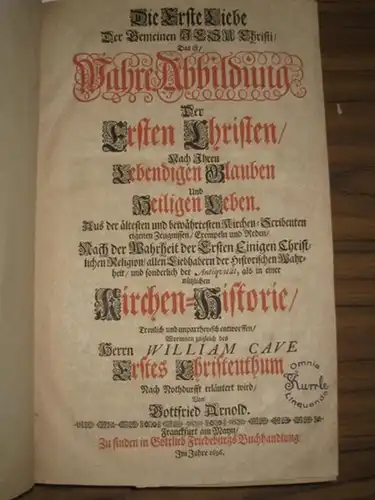 Die Erste Liebe
Der Gemeinen JESU Christi/
Das ist/
Wahre Abbildung
Der
Ersten Christen/
Nach Ihren
Lebendigen Glauben
Und
Heiligen Leben.
Aus der ältesten und bewährtesten Kirchen-Scribenten
eigenen Zeugnissen/ Exempeln und Reden/
Nach der Wahrheit der Ersten Einigen Christ-
lichen Religion/ allen Liebhabern der Historischen Wahr-
heit/ und sonderlich der Antiquität, als in einer
nützlichen
Kirchen-Historie/
Treulich und unpartheyisch entworffen/
Worinnen zugleich des
Herrn WILLIAM CAVE
Erstes Christenthum
Nach Nothdurfft erläutert wird/
Von
Gottfried Arnold.
Franckfurt am Mayn/
Zu finden in Gottlieb Friedeburgs Buchhandlung
Im Jahre 1696.
Omnia
Kurrle
Linquenda